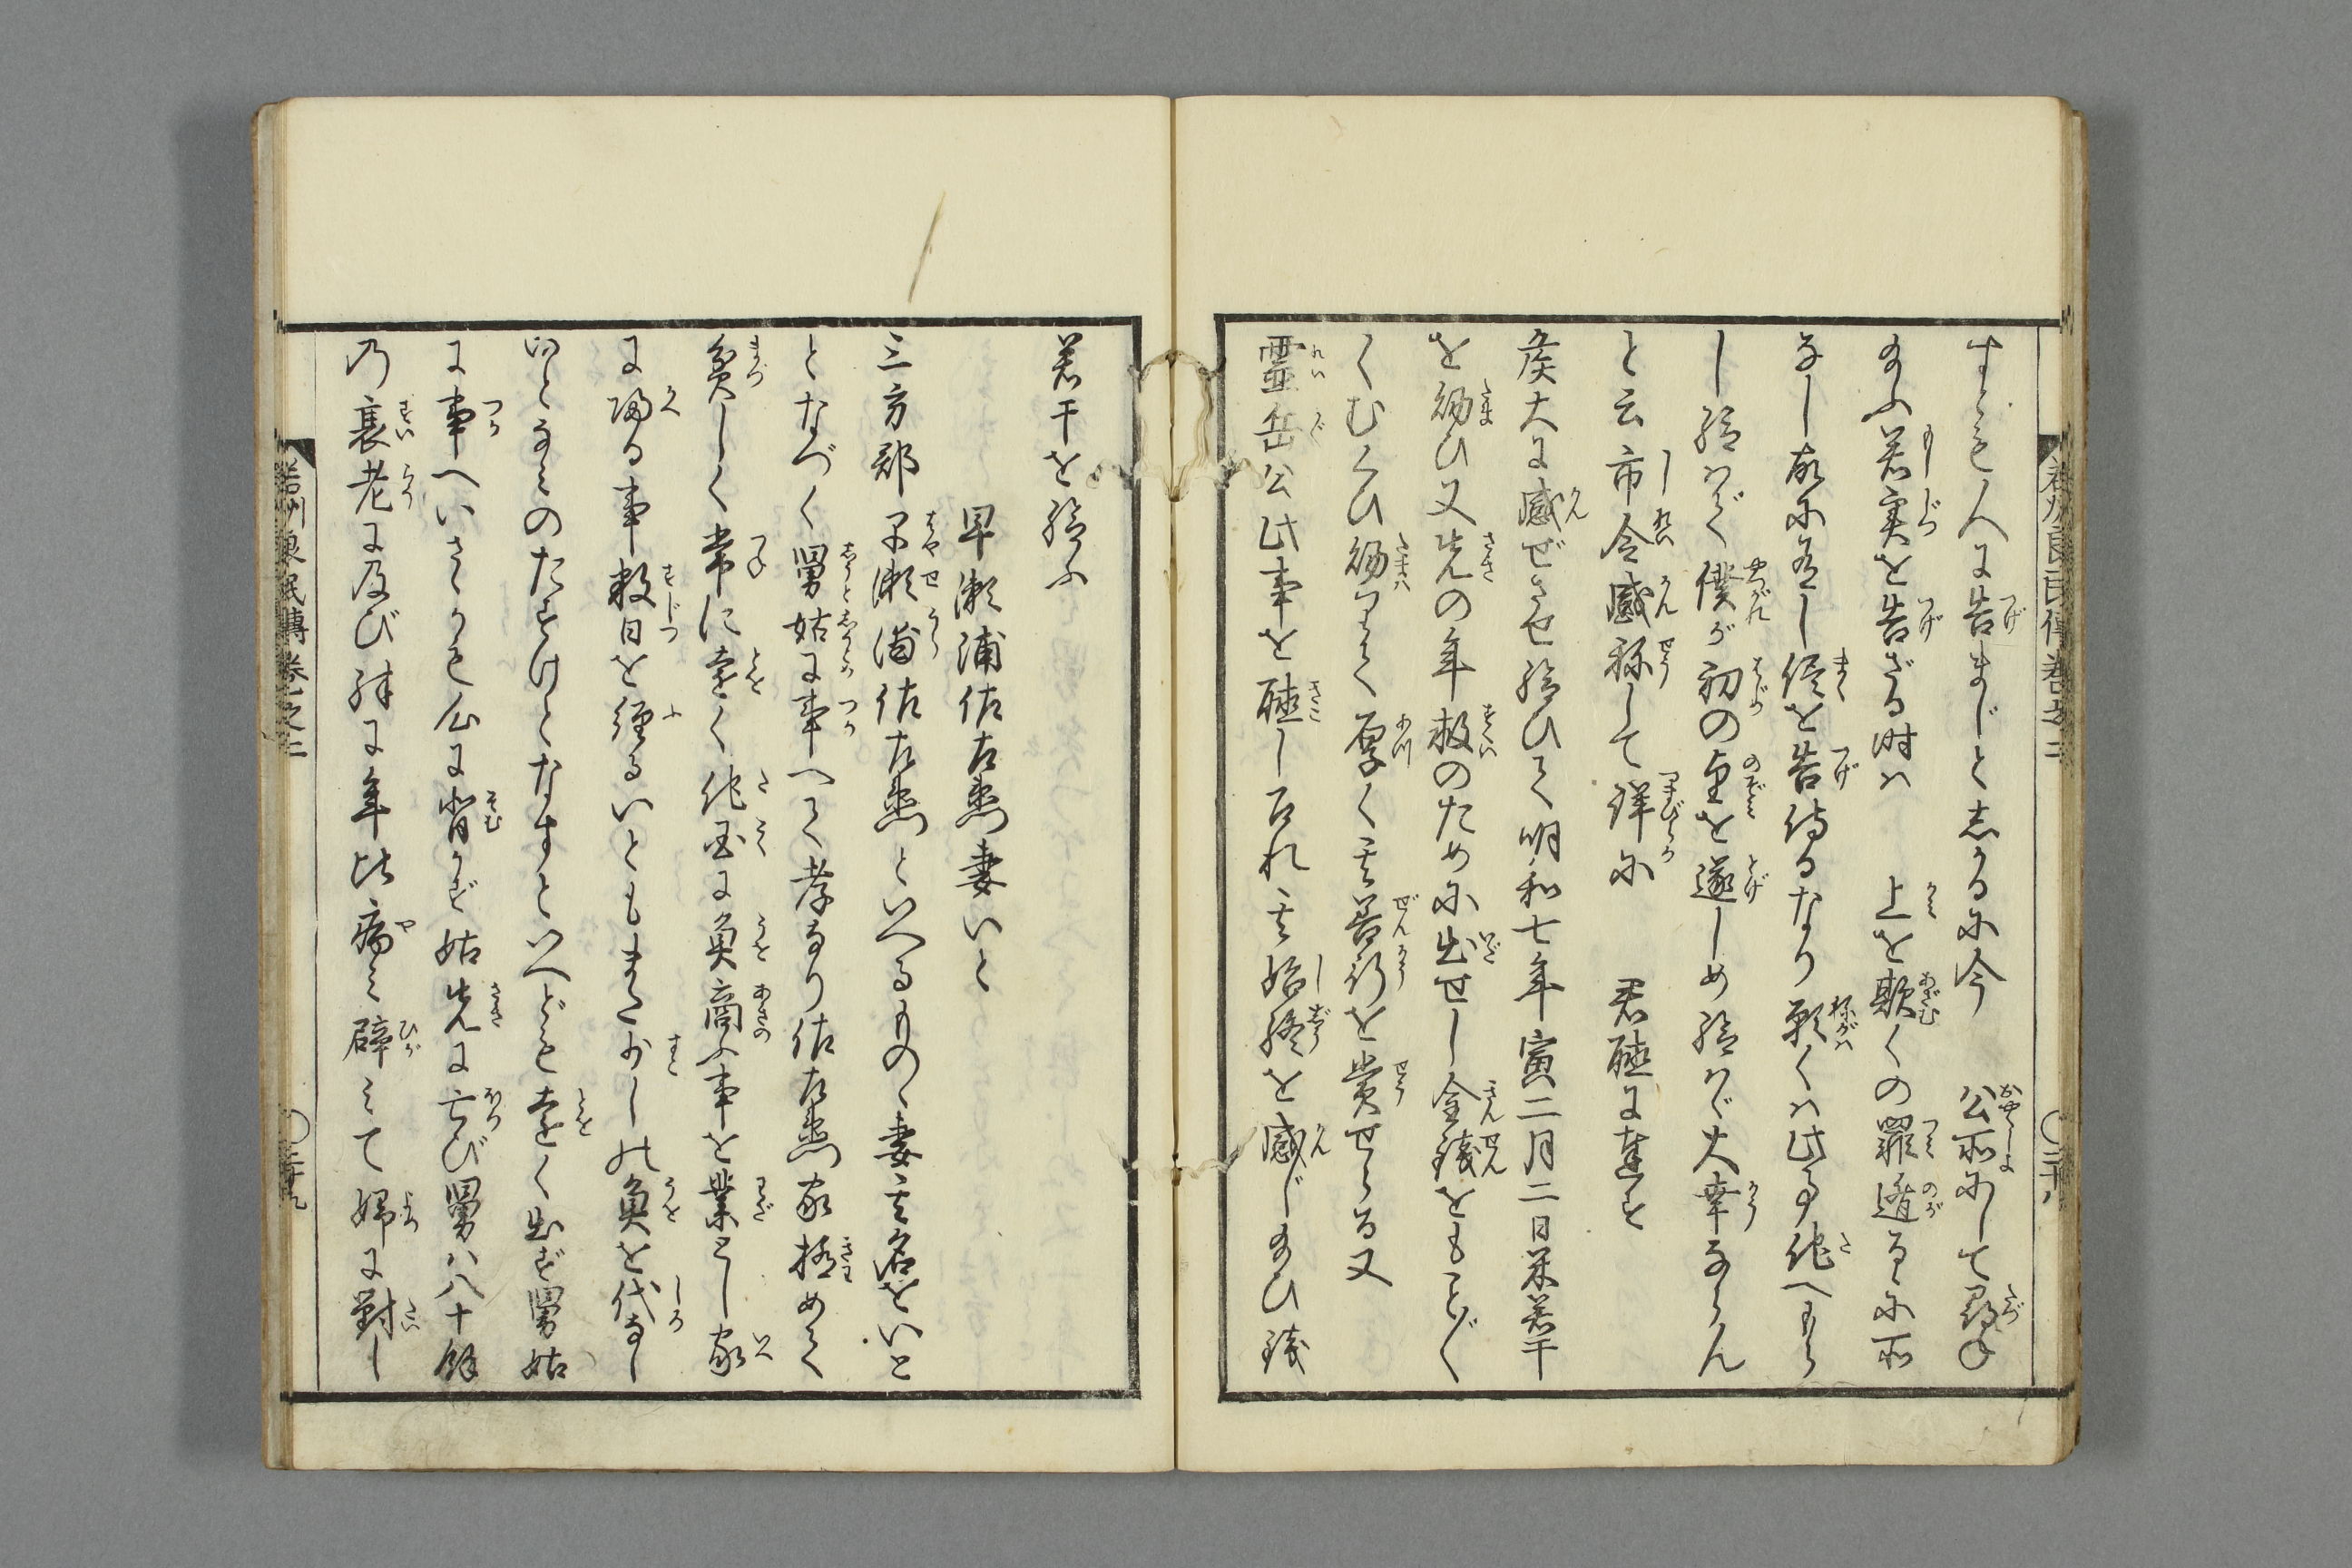 すとも人に告まじと志かるに今　公所にして尋ね
給ふ若実を告ざる時ハ　上を欺くの罪遁るゝに所
なし故に有し侭を告侍るなり願くハ此事他へもら
し給ハで僕が初の望を遂しめ給ハゞ大幸ならん
と云市令感称して詳に　君聴に達す
侯大に感ぜさせ給ひて明和七年寅二月二日米若干
を紛ひ又先の年救のために出せし金銭をもこと〴〵
くむくひ紛りて厚く其善行を賞せらる又
霊岳公此事を聴し召れ其始終を感じ給ひ銭
若州良民傳巻之二
〇三十八
若干を給ふ
早瀬浦佐左衛門妻いと
三方郡早瀬浦佐左衛門といへるものゝ妻其名をいと
となづく舅姑に事へて孝なり佐左衛門家極めて
貧しく常に遠く他国に魚商ふ事を業とし家
に帰る事数日を経るいともまた少しの魚を代なし
いとなみのたすけとなすといへども遠く出ず舅姑
に事へいさゝかも心に背かず姑先に亡び舅ハ八十餘
乃衰老に及び殊に年比病み癖みて婦に對し
若州良民傳巻之二
〇三十九